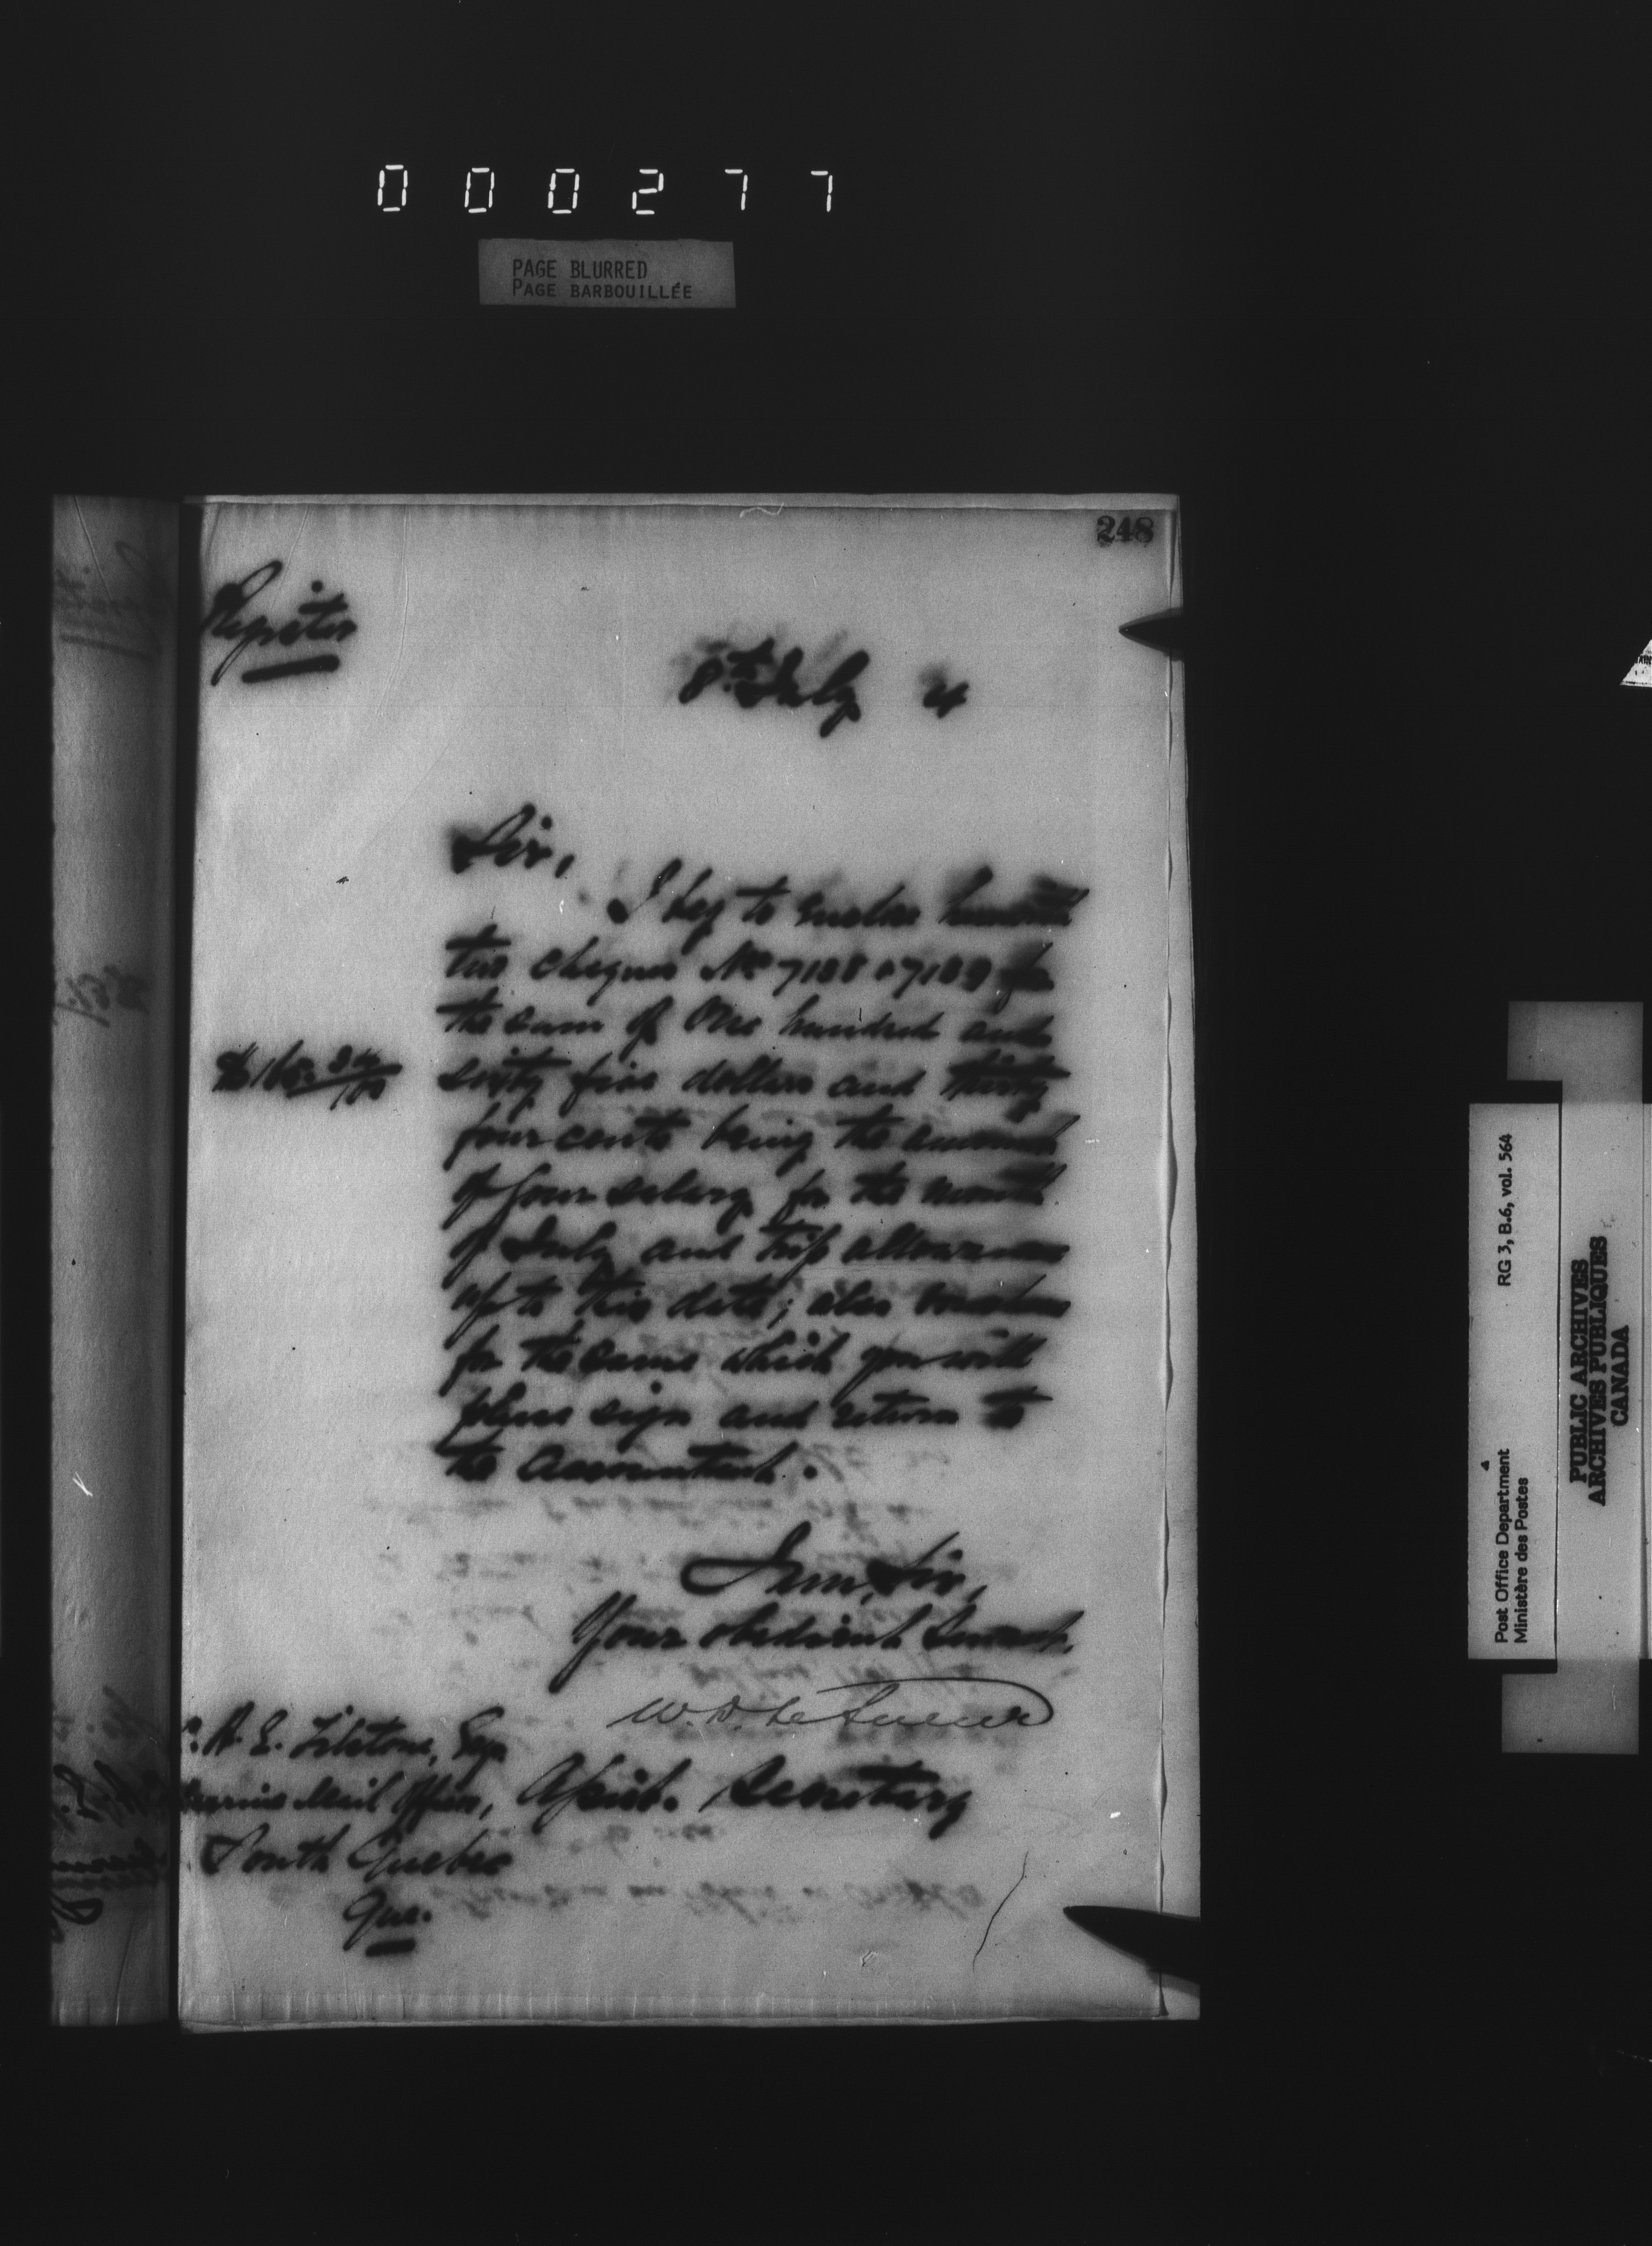 000277
PAGE BLURRED
PAGE BARBOUILLÉE
248
Register
8th July 4
Sir,
I beg to enclose herewith
two cheques Nos 7188 & 7189 for
the sum of One hundred and
$165.34/100 sixty five dollars and thirty
four cents being the amount
of your salary for the month
of July and trip allowance
up to this date; also vouchers
for the same which you will
please sign and return to
the Accountant.
I am, Sir,
Your obedient Servant,
W. D. LeSueur
Assist. Secretary
A. E. Esq
Marine Mail Officer,
South Quebec
Que.
Post Office Department
Ministère des Postes
RG 3, B.6, vol. 564
PUBLIC ARCHIVES
ARCHIVES PUBLIQUES
CANADA